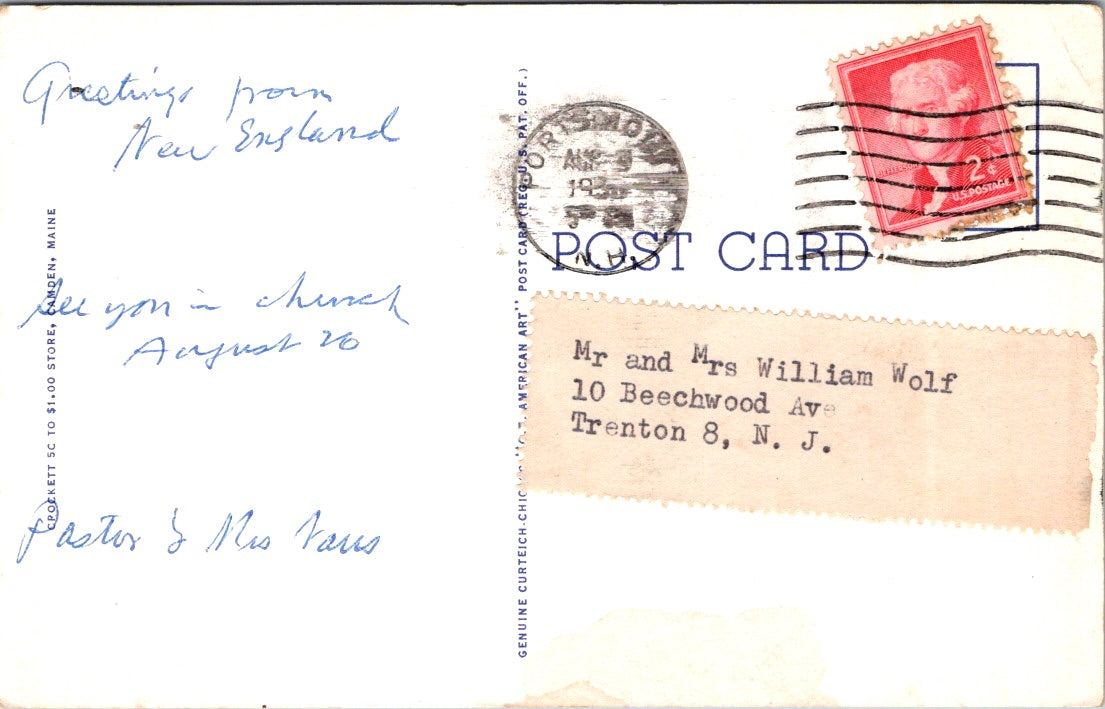 Greetings from
New England
See you in church
August 20
Pastor & Mrs
CROCKETT 5C TO $1.00 STORE, CAMDEN, MAINE
GENUINE CURTEICH-CHICAGO AMERICAN ART" POST CARD (REG. U. S. PAT. OFF.)
PORTSMOUTH
AUG 9
N.H.
JEFFERSON
2¢
U.S. POSTAGE
POST CARD
Mr and Mrs William Wolf
10 Beechwood Ave
Trenton 8, N. J.